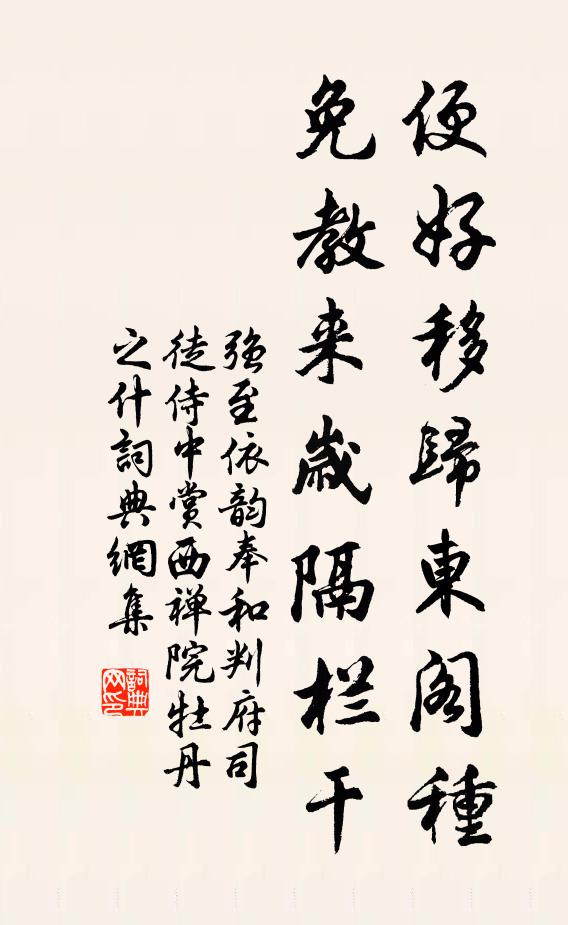 便好移歸東阁種
免教来歲隔栏干
强至依韵奉和判府司
徒侍中赏西禅院牡丹
之什詞典網集
詞典网印